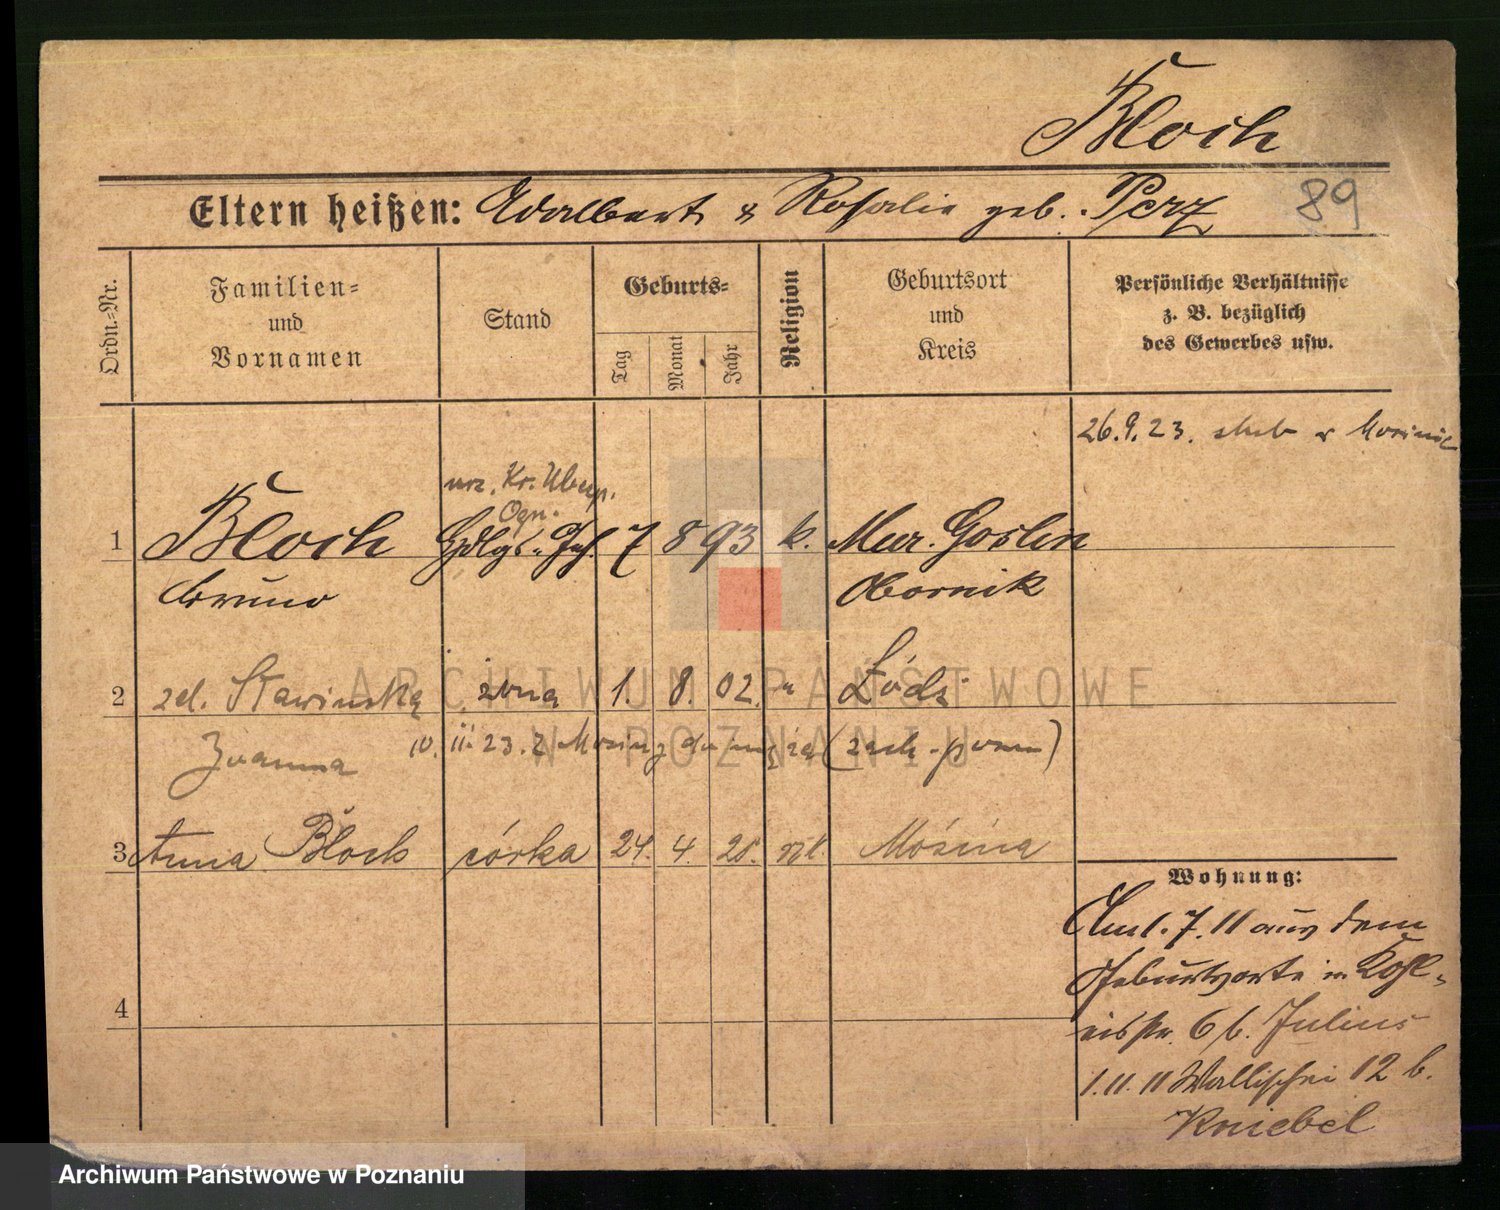 Bloch
Eltern heißen: Adalbert & Rosalie geb. Perz 89
Ordn.=Nr.
Familien=
und
Vornamen
Stand
Geburts=
Tag
Monat
Jahr
Religion
Geburtsort
und
Kreis
Persönliche Verhältnisse
z. B. bezüglich
des Gewerbes usw.
26.9.23. ślub w Mosinie
urz. Kr. Ubezp.
Ogn.
1 Bloch Hdlgs. Geh. 7 8 93 k. Mur. Goslin
Bruno Obornik
2 zd. Stawińska żona 1. 8. 02. " Łódź
Joanna 10. 11. 23. z Mosiny do męża
3 Anna Bloch córka 24. 4. Mosina
4
Wohnung:
Aml. 7. 11 aus dem
Geburtsorte in
6 b. Julius
1. 11. 11 Wallischei 12 b.
Kniebel
ARCHIWUM PAŃSTWOWE
W POZNANIU
Archiwum Państwowe w Poznaniu